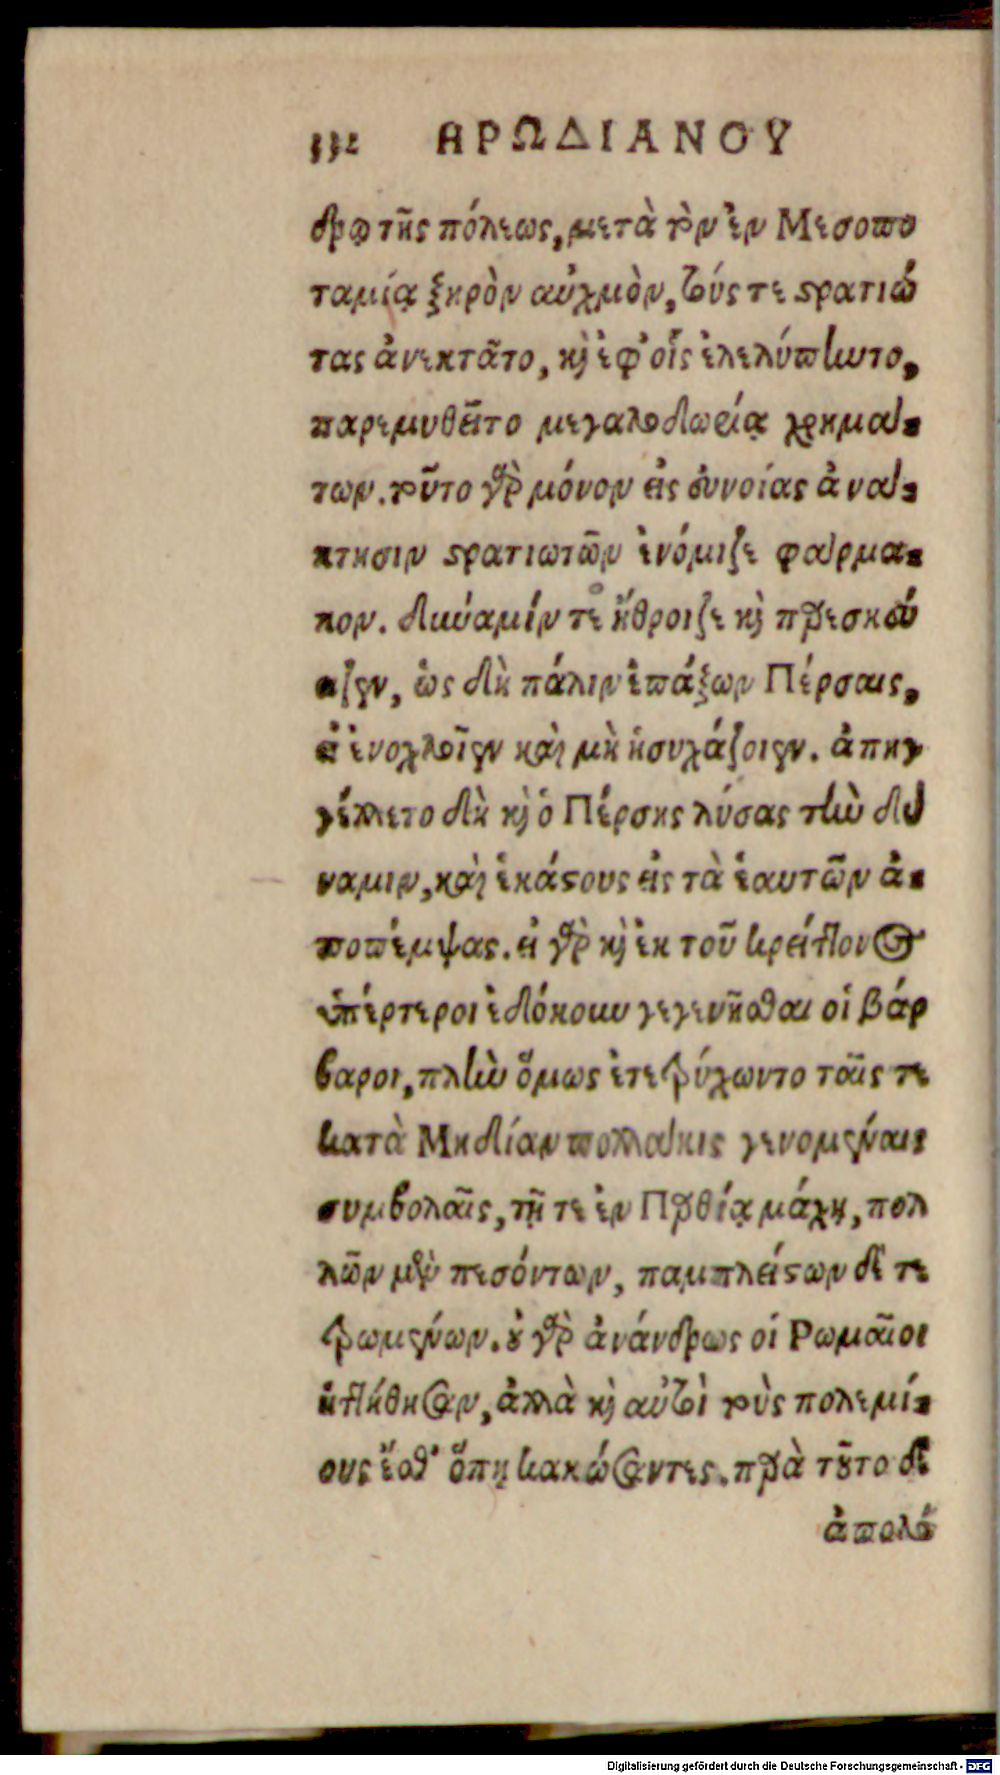 332 ΗΡΩΔΙΑΝΟΥ
δρῳ τῆς πόλεως, μετὰ τὸν ἐν Μεσοπο
ταμίᾳ ξηρὸν αὐχμὸν, τούς τε στρατιώ
τας ἀνεκτᾶτο, κỳ ἐφ᾽ οἷς ἐλελύπηντο,
παρεμυθεῖτο μεγαλοδωρίᾳ χρημά-
των. τοῦτο γὰρ μόνον εἰς εὐνοίας ἀνά-
κτησιν στρατιωτῶν ἐνόμιζε φάρμα-
κον. δύναμίν τε ἤθροιζε κỳ παρεσκεύ
αζεν, ὡς δὴ πάλιν ἐπάξων Πέρσαις,
εἰ ἐνοχλοῖεν καὶ μὴ ἡσυχάζοιεν. ἀπηγ
γέλλετο δὴ κỳ ὁ Πέρσης λύσας τὴν δύ
ναμιν, καὶ ἑκάστους εἰς τὰ ἑαυτῶν ἀ-
ποπέμψας. εἰ γὰρ κỳ ἐκ τοῦ κρείττονος
ὑπέρτεροι ἐδόκουν γεγενῆσθαι οἱ βάρ
βαροι, πλὴν ὅμως ἐτετρύχωντο ταῖς τε
κατὰ Μηδίαν πολλάκις γενομέναις
συμβολαῖς, τῇ τε ἐν Παρθίᾳ μάχῃ, πολ
λῶν μὲν πεσόντων, παμπλείστων δὲ τε
τρωμένων. οὐ γὰρ ἀνάνδρως οἱ Ρωμαῖοι
ἡττήθησαν, ἀλλὰ κỳ αὐτοὶ τοὺς πολεμί-
ους ἔσθ᾽ ὅπῃ κακώσαντες. παρὰ τοῦτο δὲ
ἀπολό
Digitalisierung gefördert durch die Deutsche Forschungsgemeinschaft - DFG